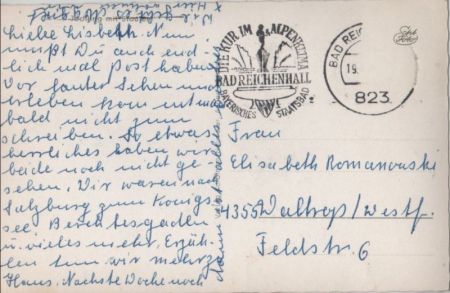 Liebe Lisbeth. Nun
mußt Du auch end-
lich mal Post haben
Vor lauter Sehen und
erleben kommt man
bald nicht zum
schreiben. So etwas
herrliches haben wir
beide noch nicht ge-
sehen. Wir waren nach
Salzburg zum Königs-
see Berchtesgaden
u. vieles mehr. Erzäh-
len tun wir mehr zu
Haus. Nächste Woche noch
dann ist alles
KUR IM ALPENKLIMA
BAD REICHENHALL
BAYERISCHES STAATSBAD
BAD REIC
19.
823
Frau
Elisabeth Romanowske
4355 Waltrop/Westf.
Feldstr. 6